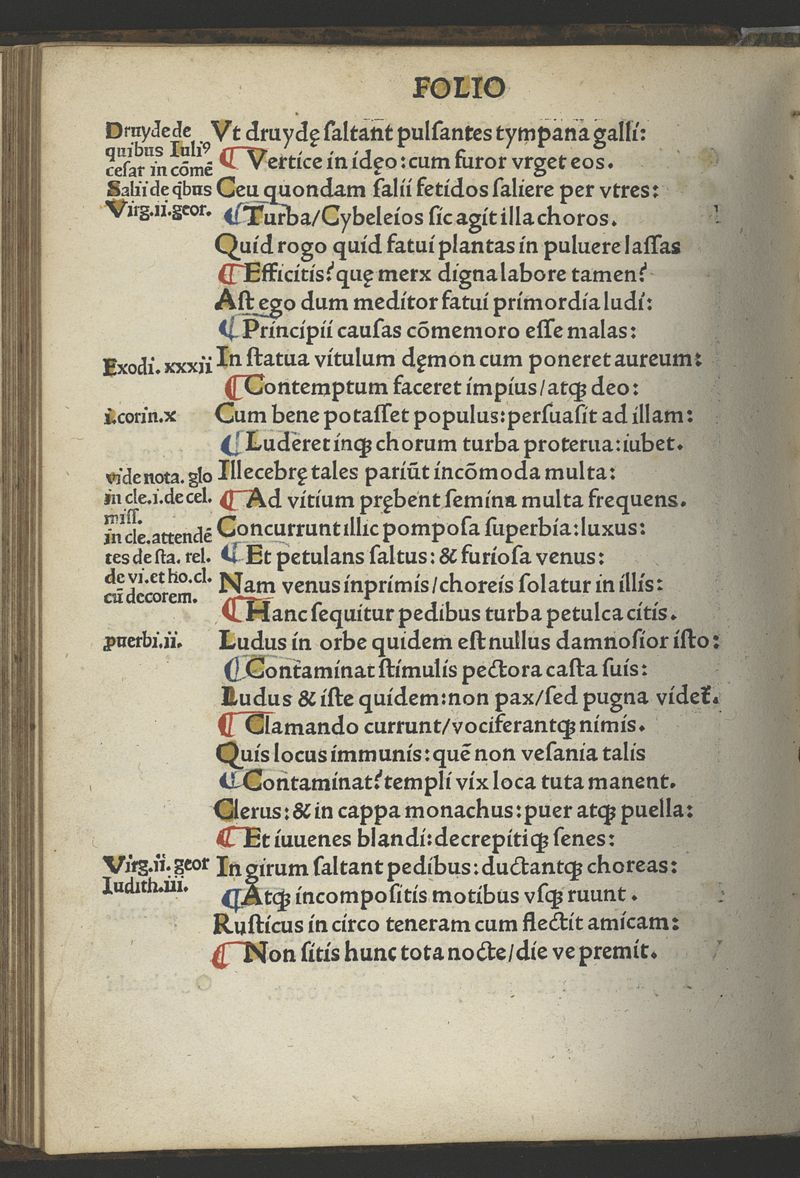 FOLIO
Druyde de
quibus Iuliꝰ
cesar in cōmē
Salii de q̄bus
Virg.ii.geor.
Vt druydę saltant pulsantes tympana galli:
¶ Vertice in idęo: cum furor vrget eos.
Ceu quondam salii fetidos saliere per vtres:
¶ Turba/Cybeleios sic agit illa choros.
Quid rogo quid fatui plantas in puluere lassas
¶ Efficitis? quę merx digna labore tamen?
Ast ego dum meditor fatui primordia ludi:
¶ Principii causas cōmemoro esse malas:
Exodi.xxxii
In statua vitulum dęmon cum poneret aureum:
¶ Contemptum faceret impius/atqꝫ deo:
i.corin.x
Cum bene potasset populus: persuasit ad illam:
¶ Luderet inqꝫ chorum turba proterua: iubet.
vide nota. glo
in cle.i.de cel.
miss.
in cle.attendē
tes de sta. rel.
de vi.et ho.cl.
cū decorem.
Illecebrę tales pariūt incōmoda multa:
¶ Ad vitium prębent semina multa frequens.
Concurrunt illic pomposa superbia: luxus:
¶ Et petulans saltus: & furiosa venus:
Nam venus inprimis/choreis solatur in illis:
¶ Hanc sequitur pedibus turba petulca citis.
ꝓuerbi.ii.
Ludus in orbe quidem est nullus damnosior isto:
¶ Contaminat stimulis pectora casta suis:
Ludus & iste quidem: non pax/sed pugna videt᷑.
¶ Clamando currunt/vociferantqꝫ nimis.
Quis locus immunis: quē non vesania talis
¶ Contaminat? templi vix loca tuta manent.
Clerus: & in cappa monachus: puer atqꝫ puella:
¶ Et iuuenes blandi: decrepitiqꝫ senes:
Virg.ii.geor
Iudith.iii.
In girum saltant pedibus: ductantqꝫ choreas:
¶ Atqꝫ incompositis motibus vsqꝫ ruunt.
Rusticus in circo teneram cum flectit amicam:
¶ Non sitis hunc tota nocte/die ve premit.